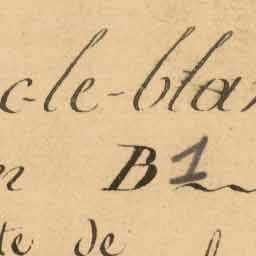 c-le-blan
n B 1
te de